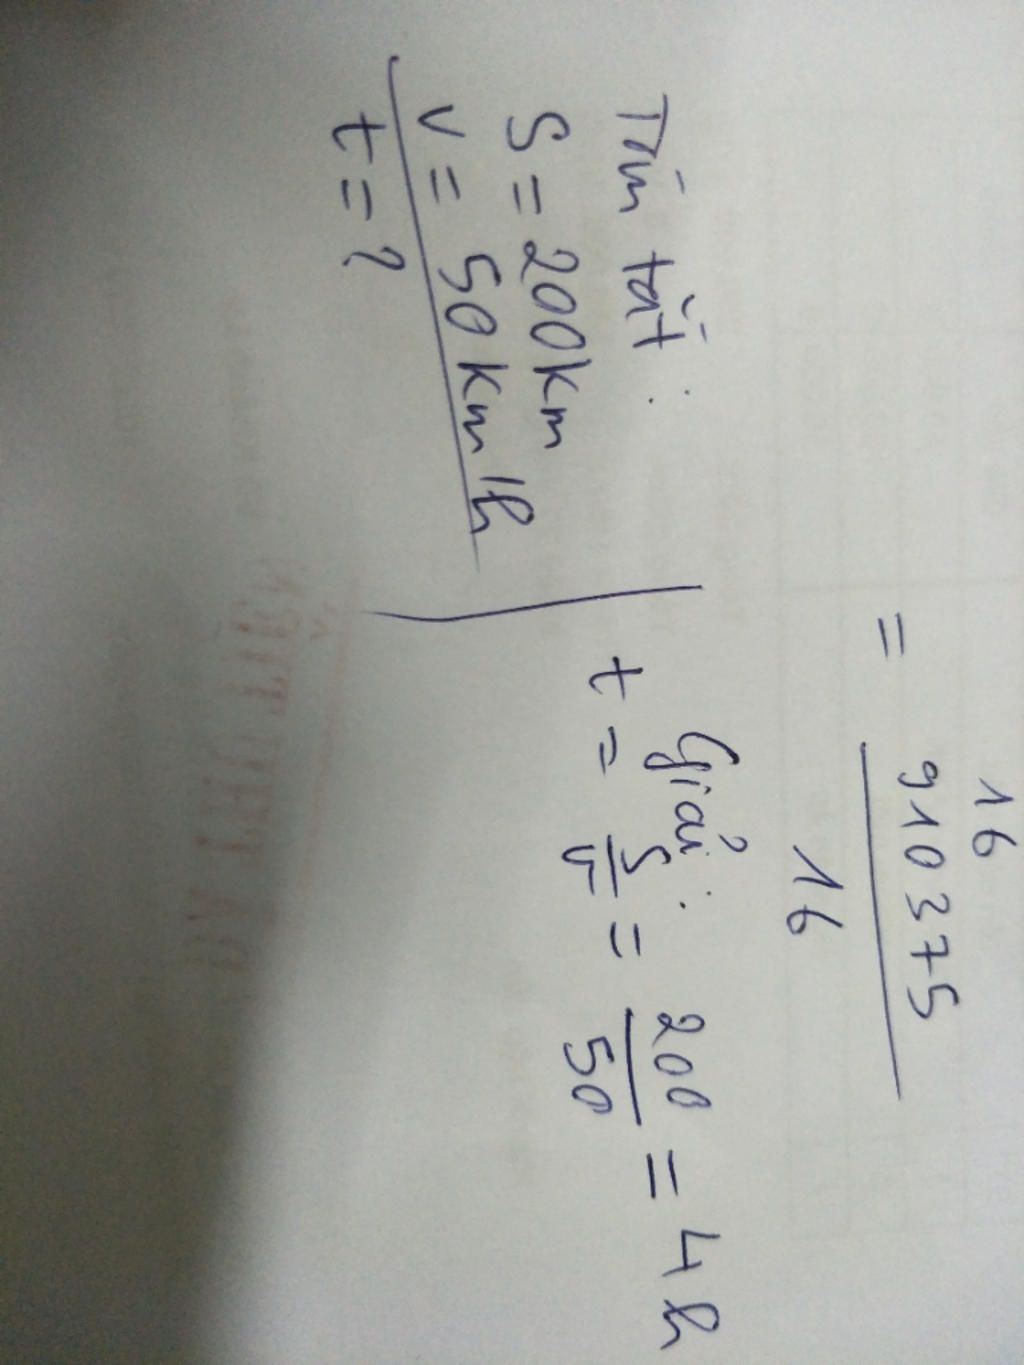 16
= 910375
16
Tóm tắt:
S = 200km
v = 50km/h
t = ?
Giải:
t = S/v = 200/50 = 4h